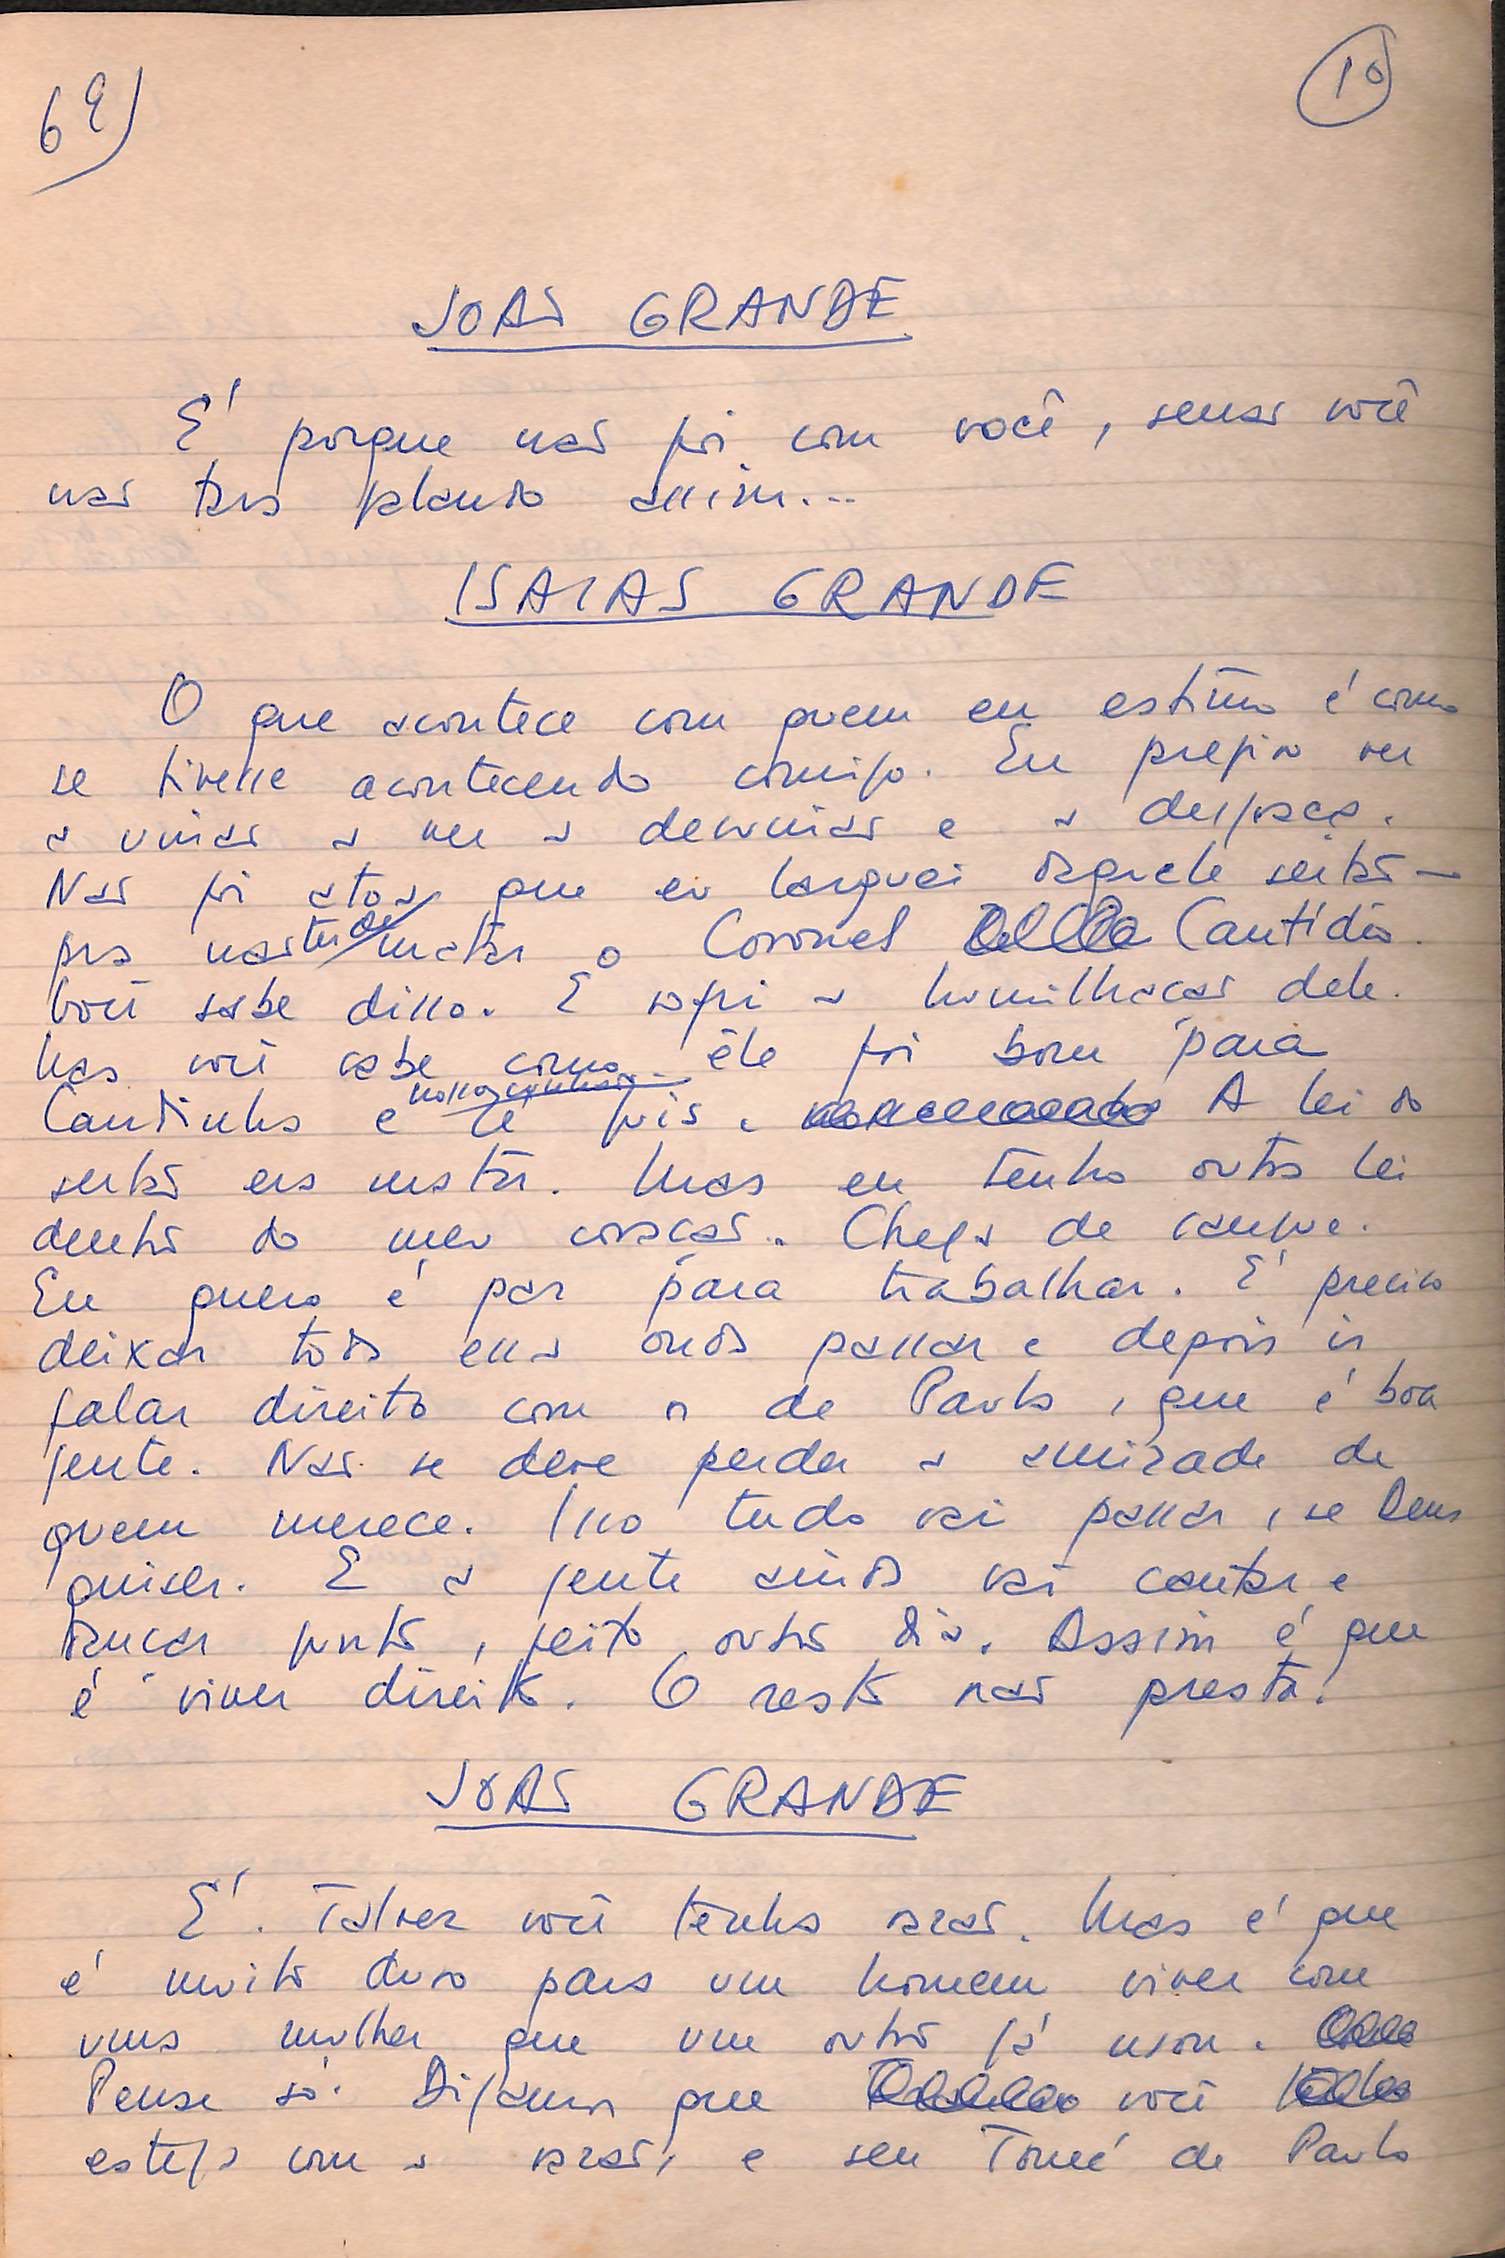 69)
10
JOÃO GRANDE
É porque não foi com você, senão você
não tava falando assim...
ISAIAS GRANDE
O que acontece com quem eu estimo é como
se tivesse acontecendo comigo. Eu prefiro ver
a união a ver a desunião e a desgraça.
Não foi atoa que eu larguei daquele sertão
pra não ter de matar o Coronel Cantídio.
Você sabe disso. E sofri a humilhação dele.
Mas você sabe como êle foi bom para
Candinha e nossos
pais. A lei do
sertão era matar. Mas eu tenho outra lei
dentro do meu coração. Chega de sangue.
Eu quero é paz para trabalhar. É preciso
deixar toda essa onda passar e depois ir
falar direito com o de Paula, que é boa
gente. Não se deve perder a amizade de
quem merece. Isso tudo vai passar, se Deus
quiser. E a gente ainda vai cantar e
dançar junto, feito outro dia. Assim é que
é viver direito. O resto não presta.
JOÃO GRANDE
É. Talvez você tenha razão. Mas é que
é muito duro para um homem viver com
uma mulher que um outro já usou.
Pense só. Digamos que você
esteja com a razão, e seu Tomé de Paula